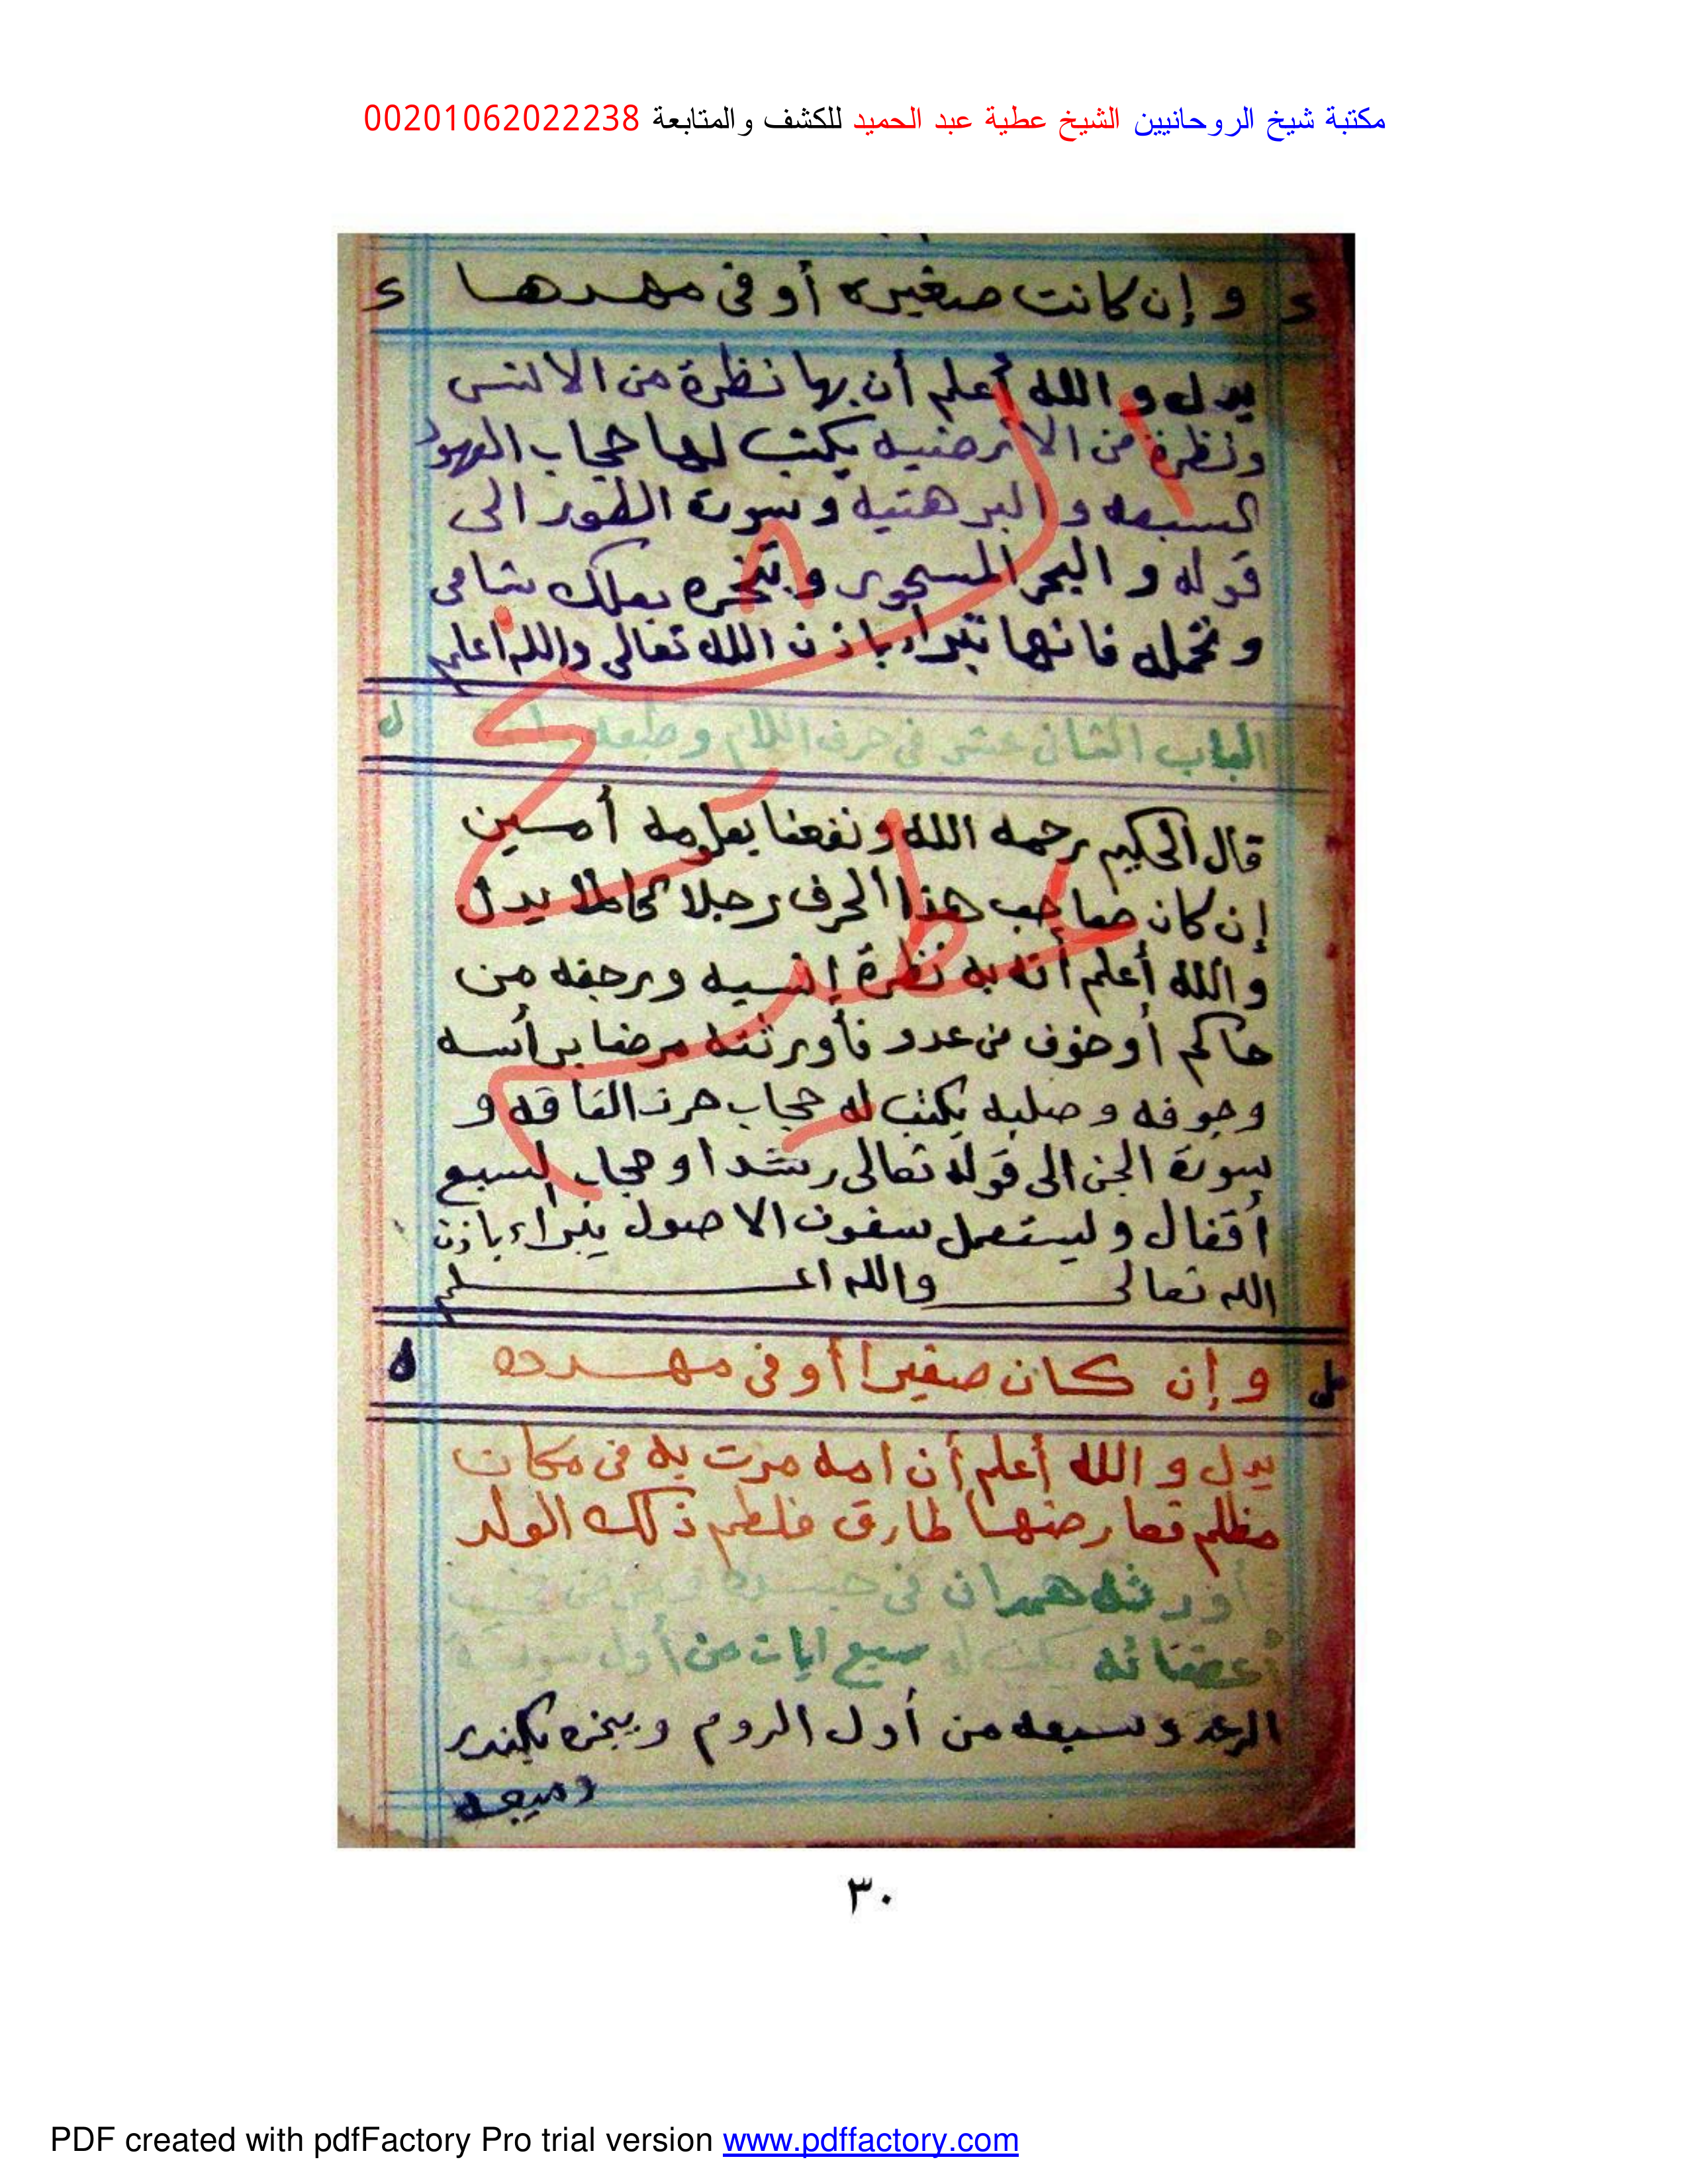 مكتبة شيخ الروحانيين الشيخ عطية عبد الحميد للكشف والمتابعة 00201062022238
و إن كانت صغيره أو فى مهدها
يدل و الله أعلم أن بها نظرة من الانس
ونظرة من الارضيه يكتب لها حجاب العهود
السبعه و البرهتيه و سورة الطور الى
قوله و البحر المسجور و تبخره بعلك شامى
و تحمله فانها تبراء باذن الله تعالى والله أعلم
الباب الثانى عشر فى حرف اللام وطبعه
ل
قال الحكيم رحمه الله و نفعنا بعلومه أمسين
إن كان صاحب هذا الحرف رجلا كاملا يدل
والله أعلم أنه به نظرة إنسيه ورجفه من
حاكم أو خوف من عدو فأورثته مرضا برأسه
وجوفه و صلبه يكتب له حجاب حرز الفاقه و
سورة الجن الى قوله تعالى رشدا و حجاب السبع
أقفال و ليستعمل سفوف الاصول يبراء باذن
الله تعالى والله اعلم
و إن كان صغيرا أو فى مهده
يدل و الله أعلم أن امه مرت به فى مكان
مظلم فعارضها طارق فلطم ذلك الولد
أورثه همدان فى جسده
أعضائه يكتب له سبع ايات من أول سورة
الرعد و سبعه من أول الروم ويبخره بكندر
وميعه
٣٠
PDF created with pdfFactory Pro trial version www.pdffactory.com